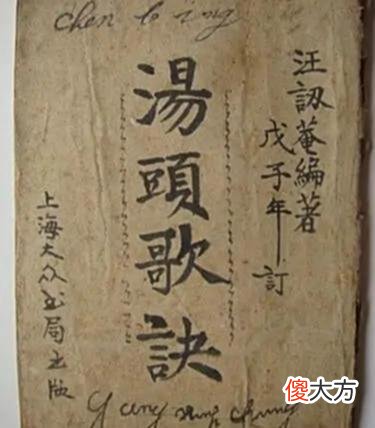 chen
汪訒菴編著
戊子年訂
湯頭歌訣
上海大众书局出版
傻大方